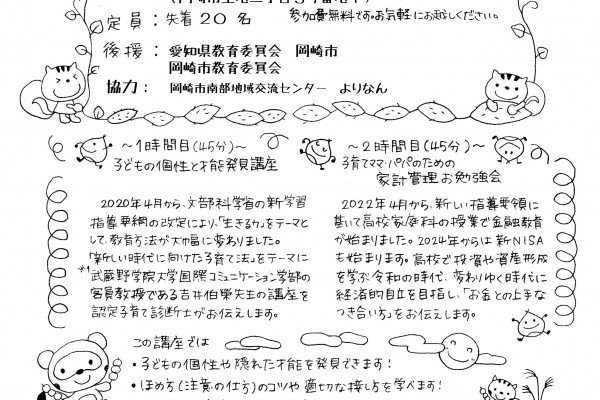 定員：先着２０名　参加費無料です。お気軽にお越しください。
後援：愛知県教育委員会　岡崎市
岡崎市教育委員会
協力：岡崎市南部地域交流センター　よりなん
～1時間目(45分)～
子どもの個性と才能発見講座
2020年4月から、文部科学省の新学習
指導要綱の改定により、「生きる力」をテーマと
して、教育方法が大幅に変わりました。
「新しい時代に向けた子育て法」をテーマに
*1武蔵野学院大学国際コミュニケーション学部の
客員教授である吉井伯榮先生の講座を
認定子育て診断士がお伝えします。
～2時間目(45分)～
子育てママ・パパのための
家計管理お勉強会
2022年4月から、新しい指導要領に
基いて高校家庭科の授業で金融教育
が始まりました。2024年からは新NISA
も始まります。高校で投資や資産形成
を学ぶ令和の時代、変わりゆく時代に
経済的自立を目指し、「お金との上手な
つき合い方」をお伝えします。
この講座では
・子どもの個性や隠れた才能を発見できます!
・ほめ方(注意の仕方)のコツや適切な接し方を学べます!